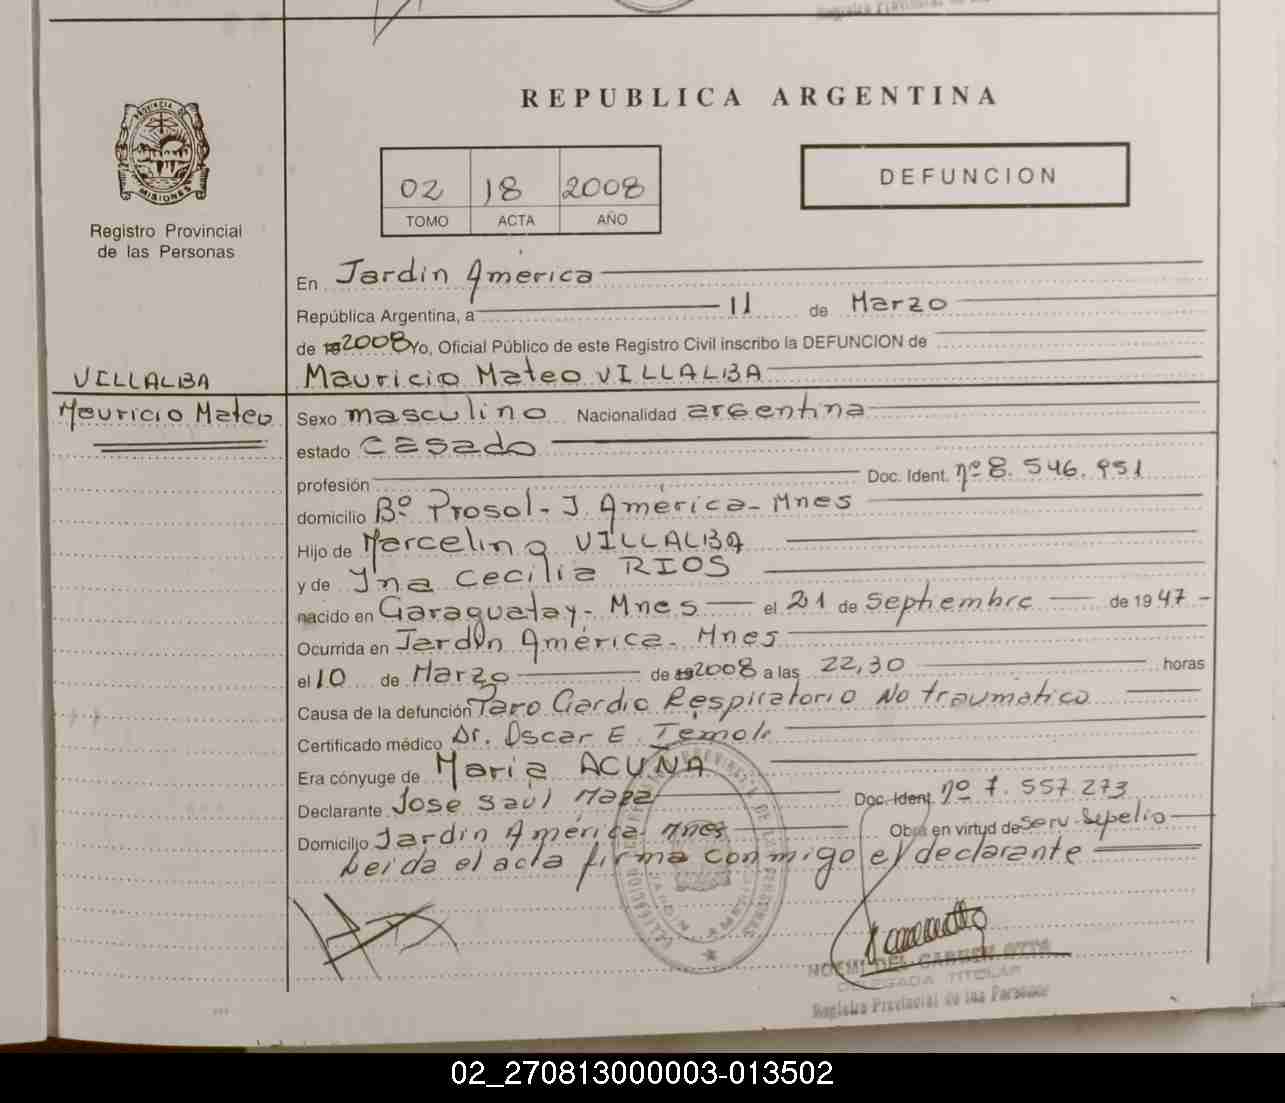 REPUBLICA ARGENTINA
PROVINCIA DE
MISIONES
Registro Provincial
de las Personas
02 18 2008
TOMO ACTA AÑO
DEFUNCION
En Jardin América
República Argentina, a 11 de Marzo
de 19 2008 Yo, Oficial Público de este Registro Civil inscribo la DEFUNCION de
VILLALBA
Mauricio Mateo VILLALBA
Mauricio Mateo
Sexo masculino Nacionalidad argentina
estado casado
profesión Doc. Ident. nº 8.546.951
domicilio Bº Prosol - J. América - Mnes
Hijo de Marcelino VILLALBA
y de Yna Cecilia RIOS
nacido en Garaguatay - Mnes el 21 de septiembre de 1947 -
Ocurrida en Jardin América - Mnes
el 10 de Marzo de 19 2008 a las 22,30 horas
Causa de la defunción Paro Cardio Respiratorio No traumático
Certificado médico Dr. Oscar E.
Era cónyuge de Maria ACUÑA
Declarante Jose Saúl Doc. Ident. nº 7.557.273
Domicilio Jardin América - Mnes Obra en virtud de serv. Sepelio
Leida el acta firma conmigo el declarante
NOEMI DEL CARMEN OTTO
DELEGADA TITULAR
Registro Provincial de las Personas
02_270813000003-013502